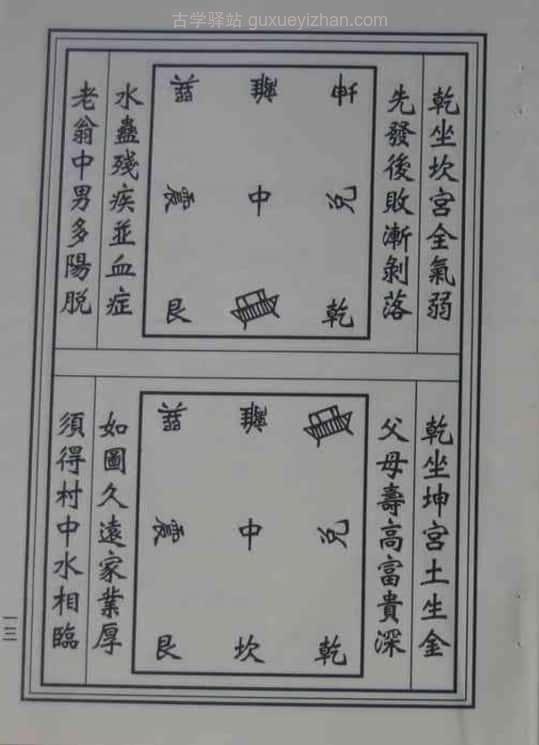 古学驿站 guxueyizhan.com
乾坐坎宮全氣弱
先發後敗漸剝落
巽 離 坤
震 中 兌
艮 乾
水蠱殘疾並血症
老翁中男多陽脫
乾坐坤宮土生金
父母壽高富貴深
巽 離
震 中 兌
艮 坎 乾
如圖久遠家業厚
須得村中水相臨
一三